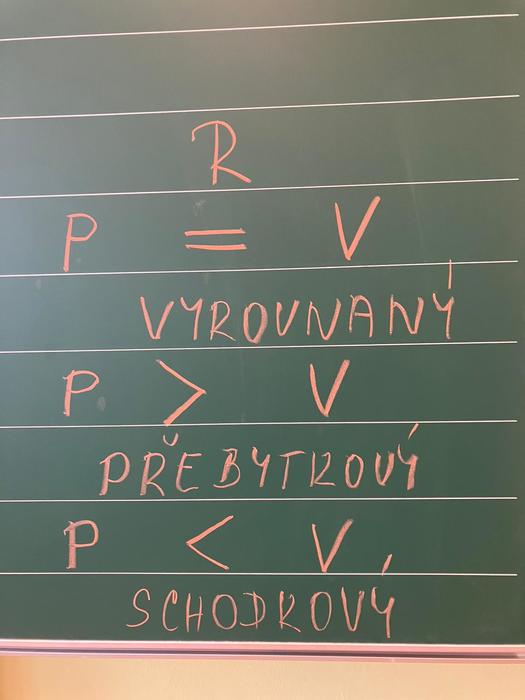 R
P = V
VYROVNANÝ
P > V
PŘEBYTKOVÝ
P < V
SCHODKOVÝ